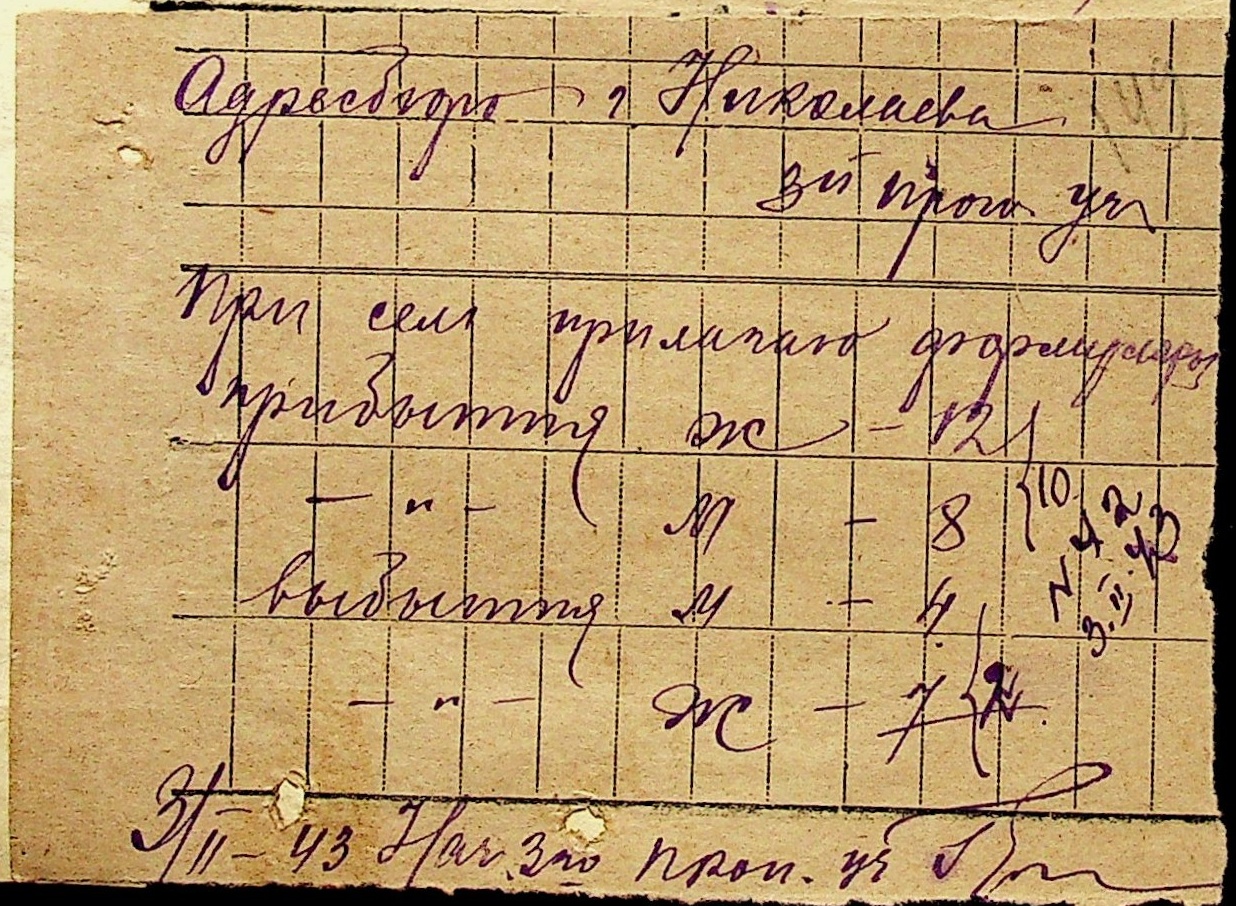 Адресбюро г Николаева
149
3й проп уч
При сем прилагаю формуляры
прибыття ж - 12
- " - м - 8 } 10
выбыття м - 4
- " - ж - 7
3.II.43
3/II-43 Нач. 3го проп. уч